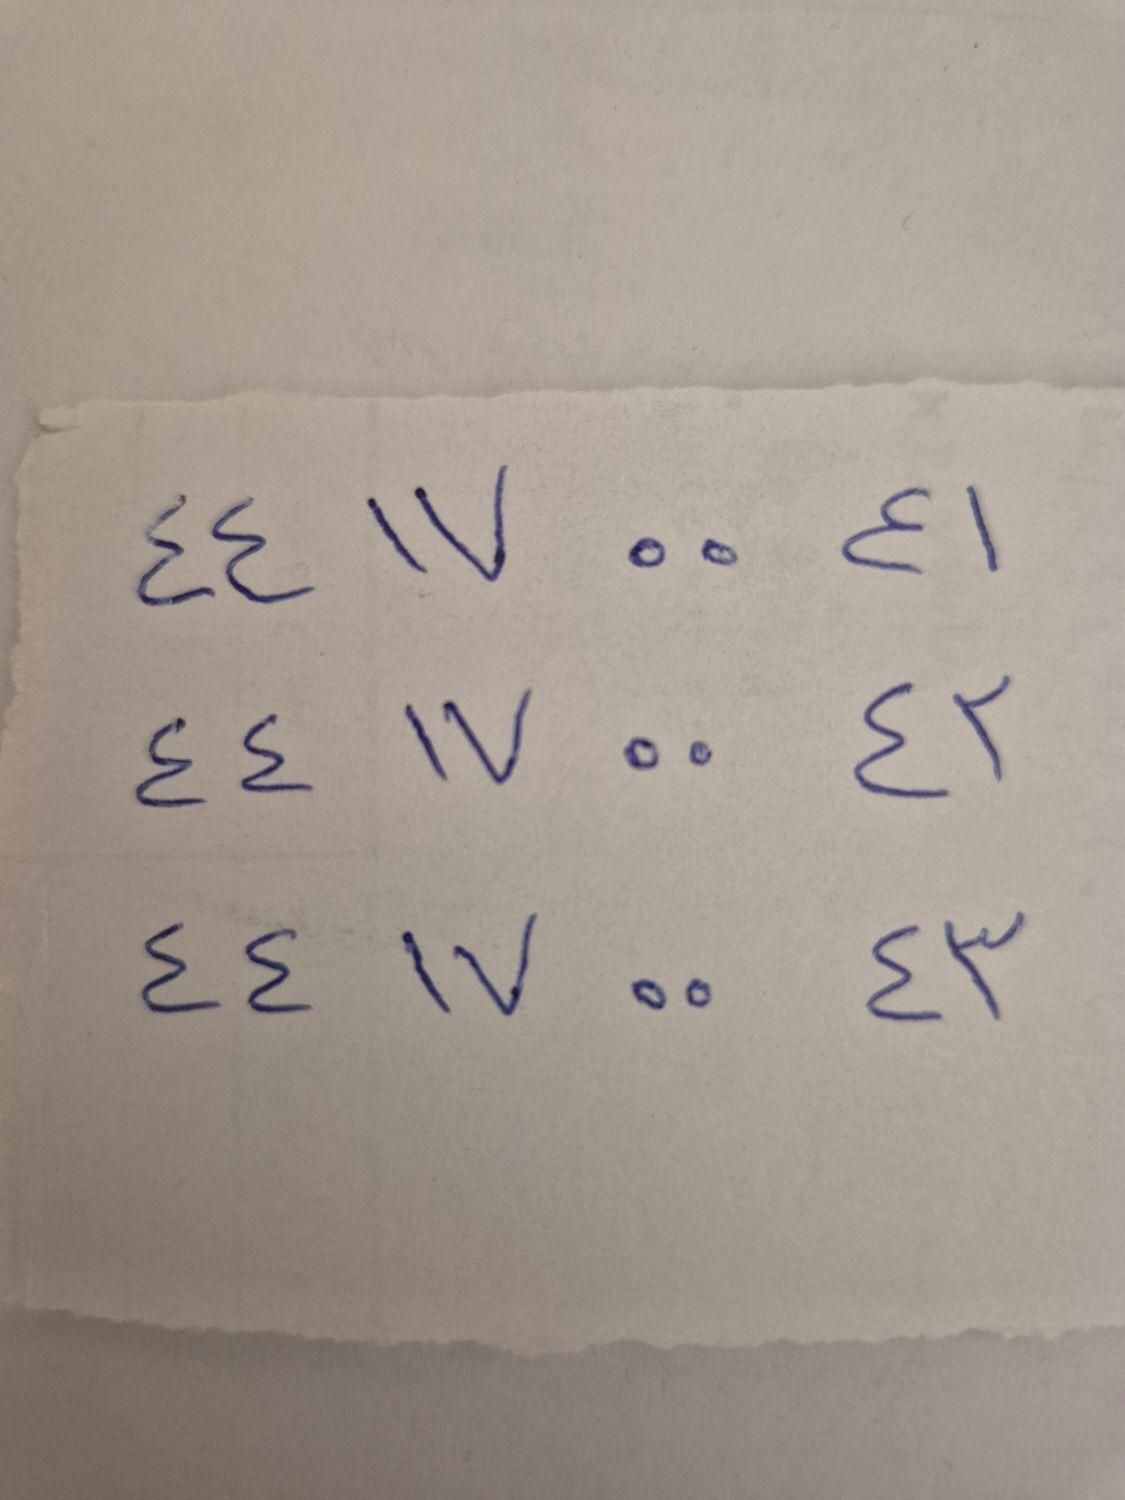 ٤٤ ١٧ ٠٠ ٤١
٤٤ ١٧ ٠٠ ٤٢
٤٤ ١٧ ٠٠ ٤٣